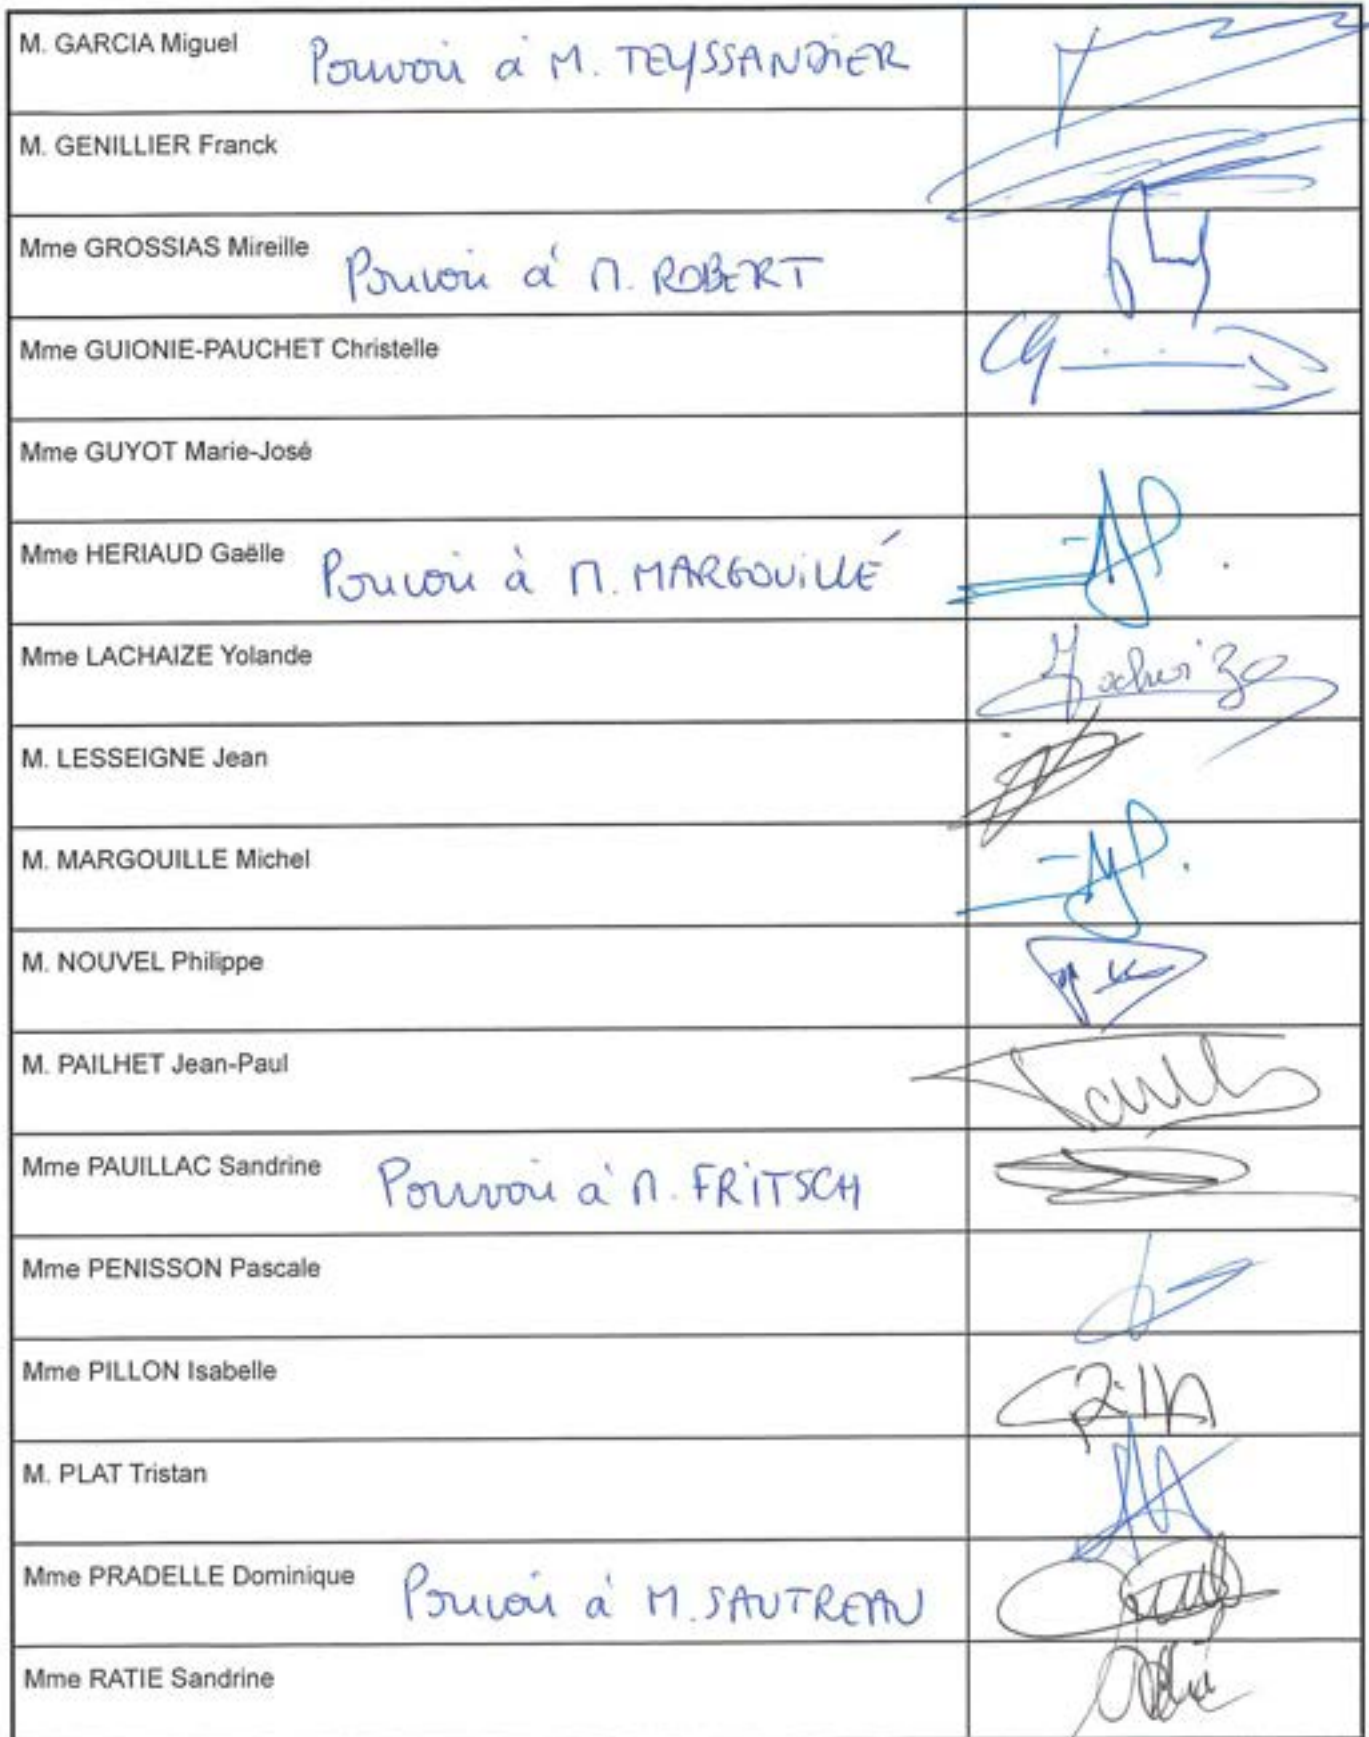 M. GARCIA Miguel Pouvoir à M. TEYSSANDIER
M. GENILLIER Franck
Mme GROSSIAS Mireille Pouvoir à M. ROBERT
Mme GUIONIE-PAUCHET Christelle
Mme GUYOT Marie-José
Mme HERIAUD Gaëlle Pouvoir à M. MARGOUILLÉ
Mme LACHAIZE Yolande
M. LESSEIGNE Jean
M. MARGOUILLE Michel
M. NOUVEL Philippe
M. PAILHET Jean-Paul
Mme PAUILLAC Sandrine Pouvoir à M. FRITSCH
Mme PENISSON Pascale
Mme PILLON Isabelle
M. PLAT Tristan
Mme PRADELLE Dominique Pouvoir à M. SAUTREAU
Mme RATIE Sandrine